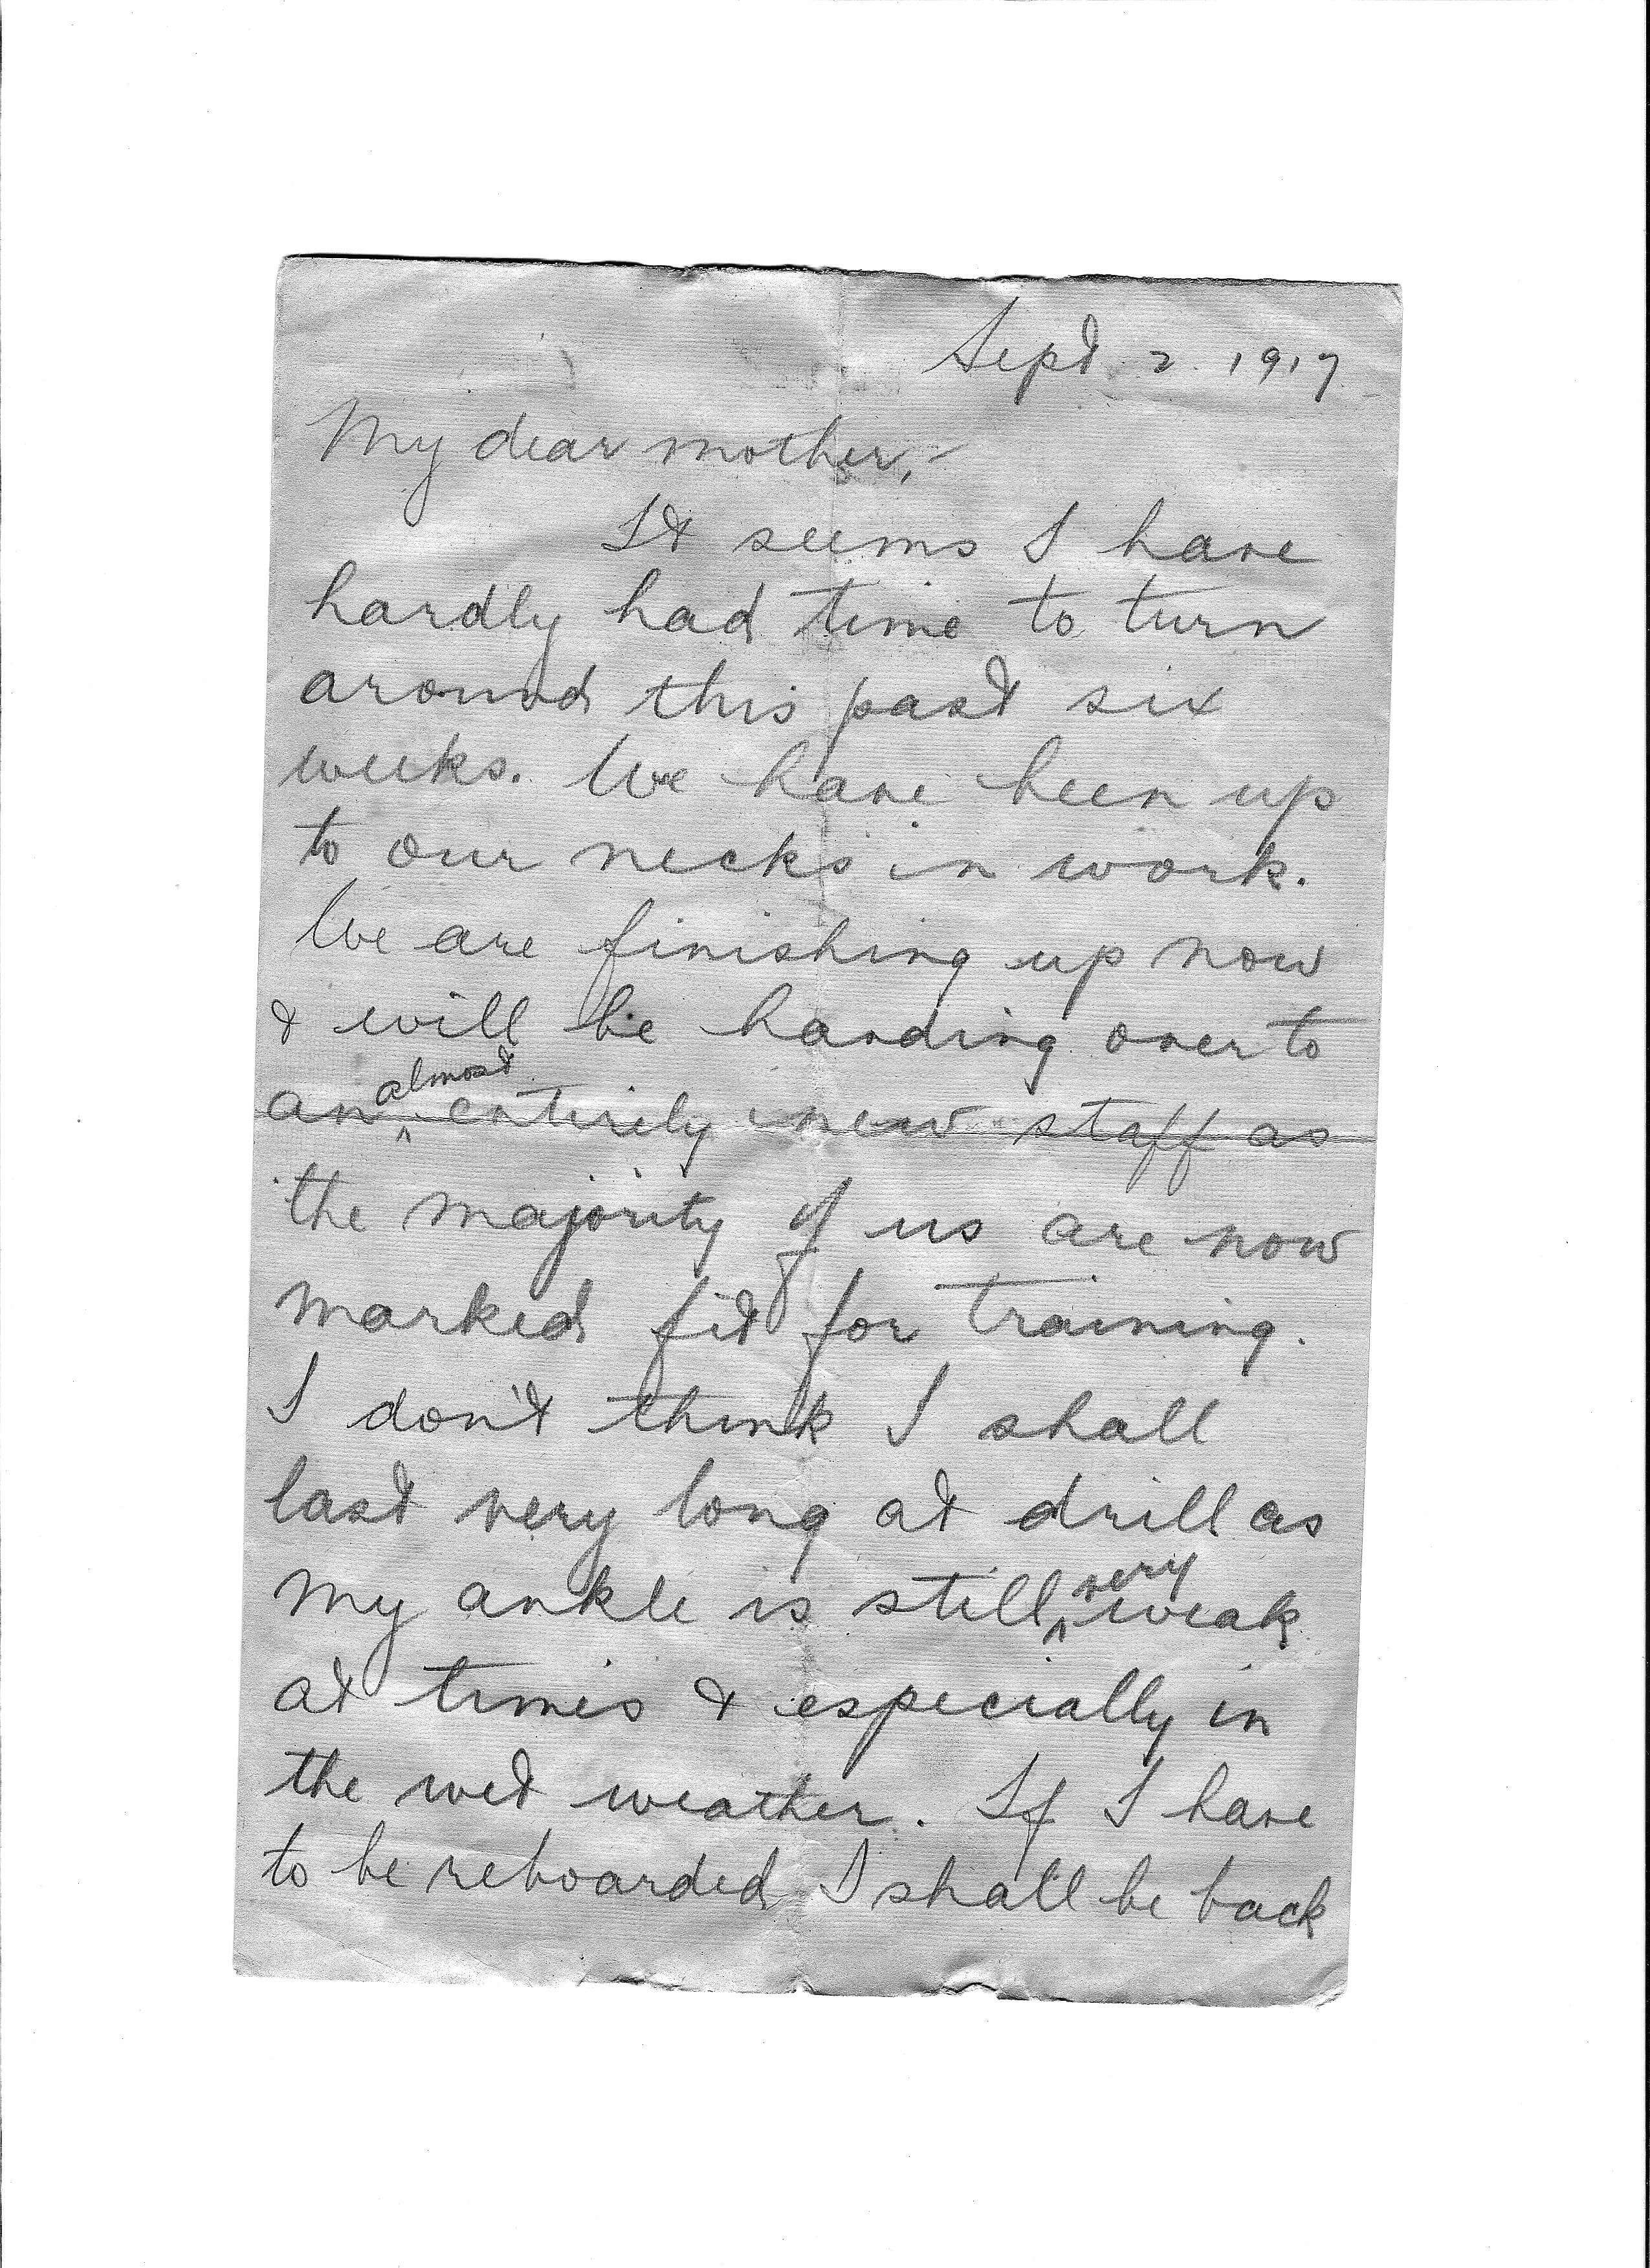 Sept 2. 1917.
My dear mother,-
It seems I have
hardly had time to turn
around this past six
weeks. We have been up
to our necks in work.
We are finishing up now
& will be handing over to
an almost entirely new staff as
the majority of us are now
marked fit for training.
I don't think I shall
last very long at drill as
my ankle is still very weak
at times & especially in
the wet weather. If I have
to be reboarded I shall be back